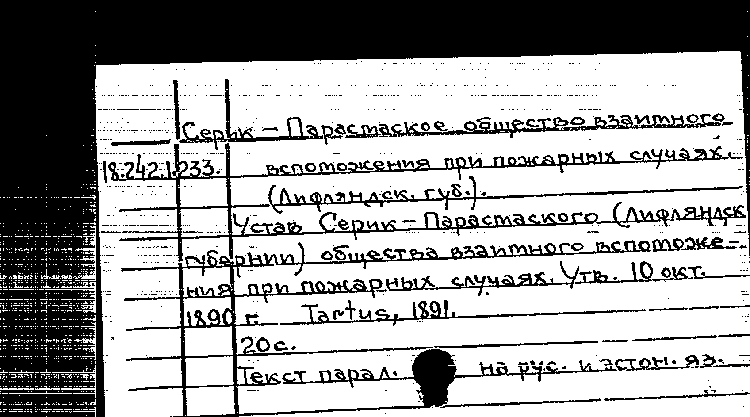 Серик – Парастаское общество взаитного
18.242.1.233. вспотожения при пожарных случаях.
(Лифляндск. губ.).
Устав Серик – Парастаского (Лифляндск
губернии) общества взаитного вспотоже-
ния при пожарных случаях. Утв. 10 окт.
1890 г. Tartus, 1891.
20 с.
Текст парал. на рус. и эстон. яз.